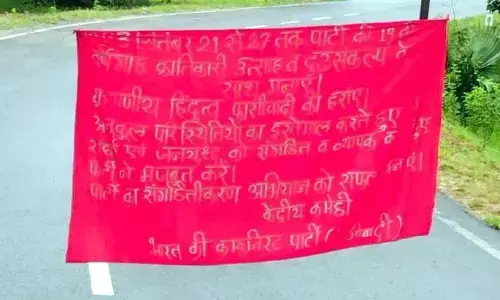 सितंबर 21 से 27 तक पार्टी की 19 वीं
क्रांतिकारी उत्साह व दृढसंकल्प के
साथ मनाएं।
हिंदुत्व फासीवादी को हराएं।
अनुकूल परिस्थितियों का इस्तेमाल करते हुए
एवं जनयुद्ध को संगठित व व्यापक
मजबूत करें।
पार्टी का अभियान को सफल
केंद्रीय कमेटी
भारत की पार्टी (